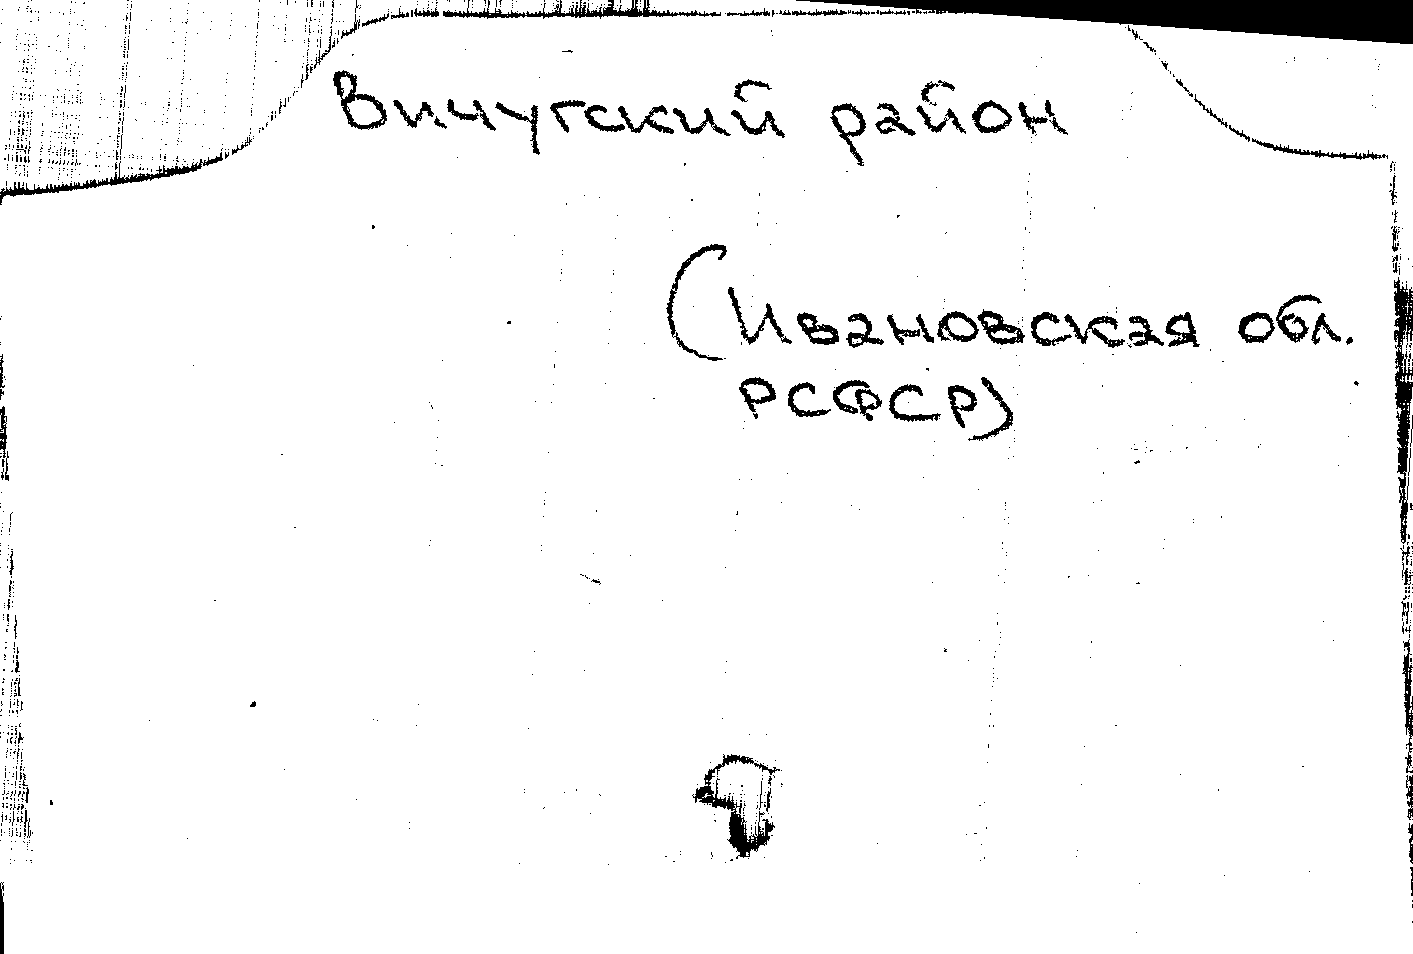 Вичугский район
(Ивановская обл.
РСФСР)